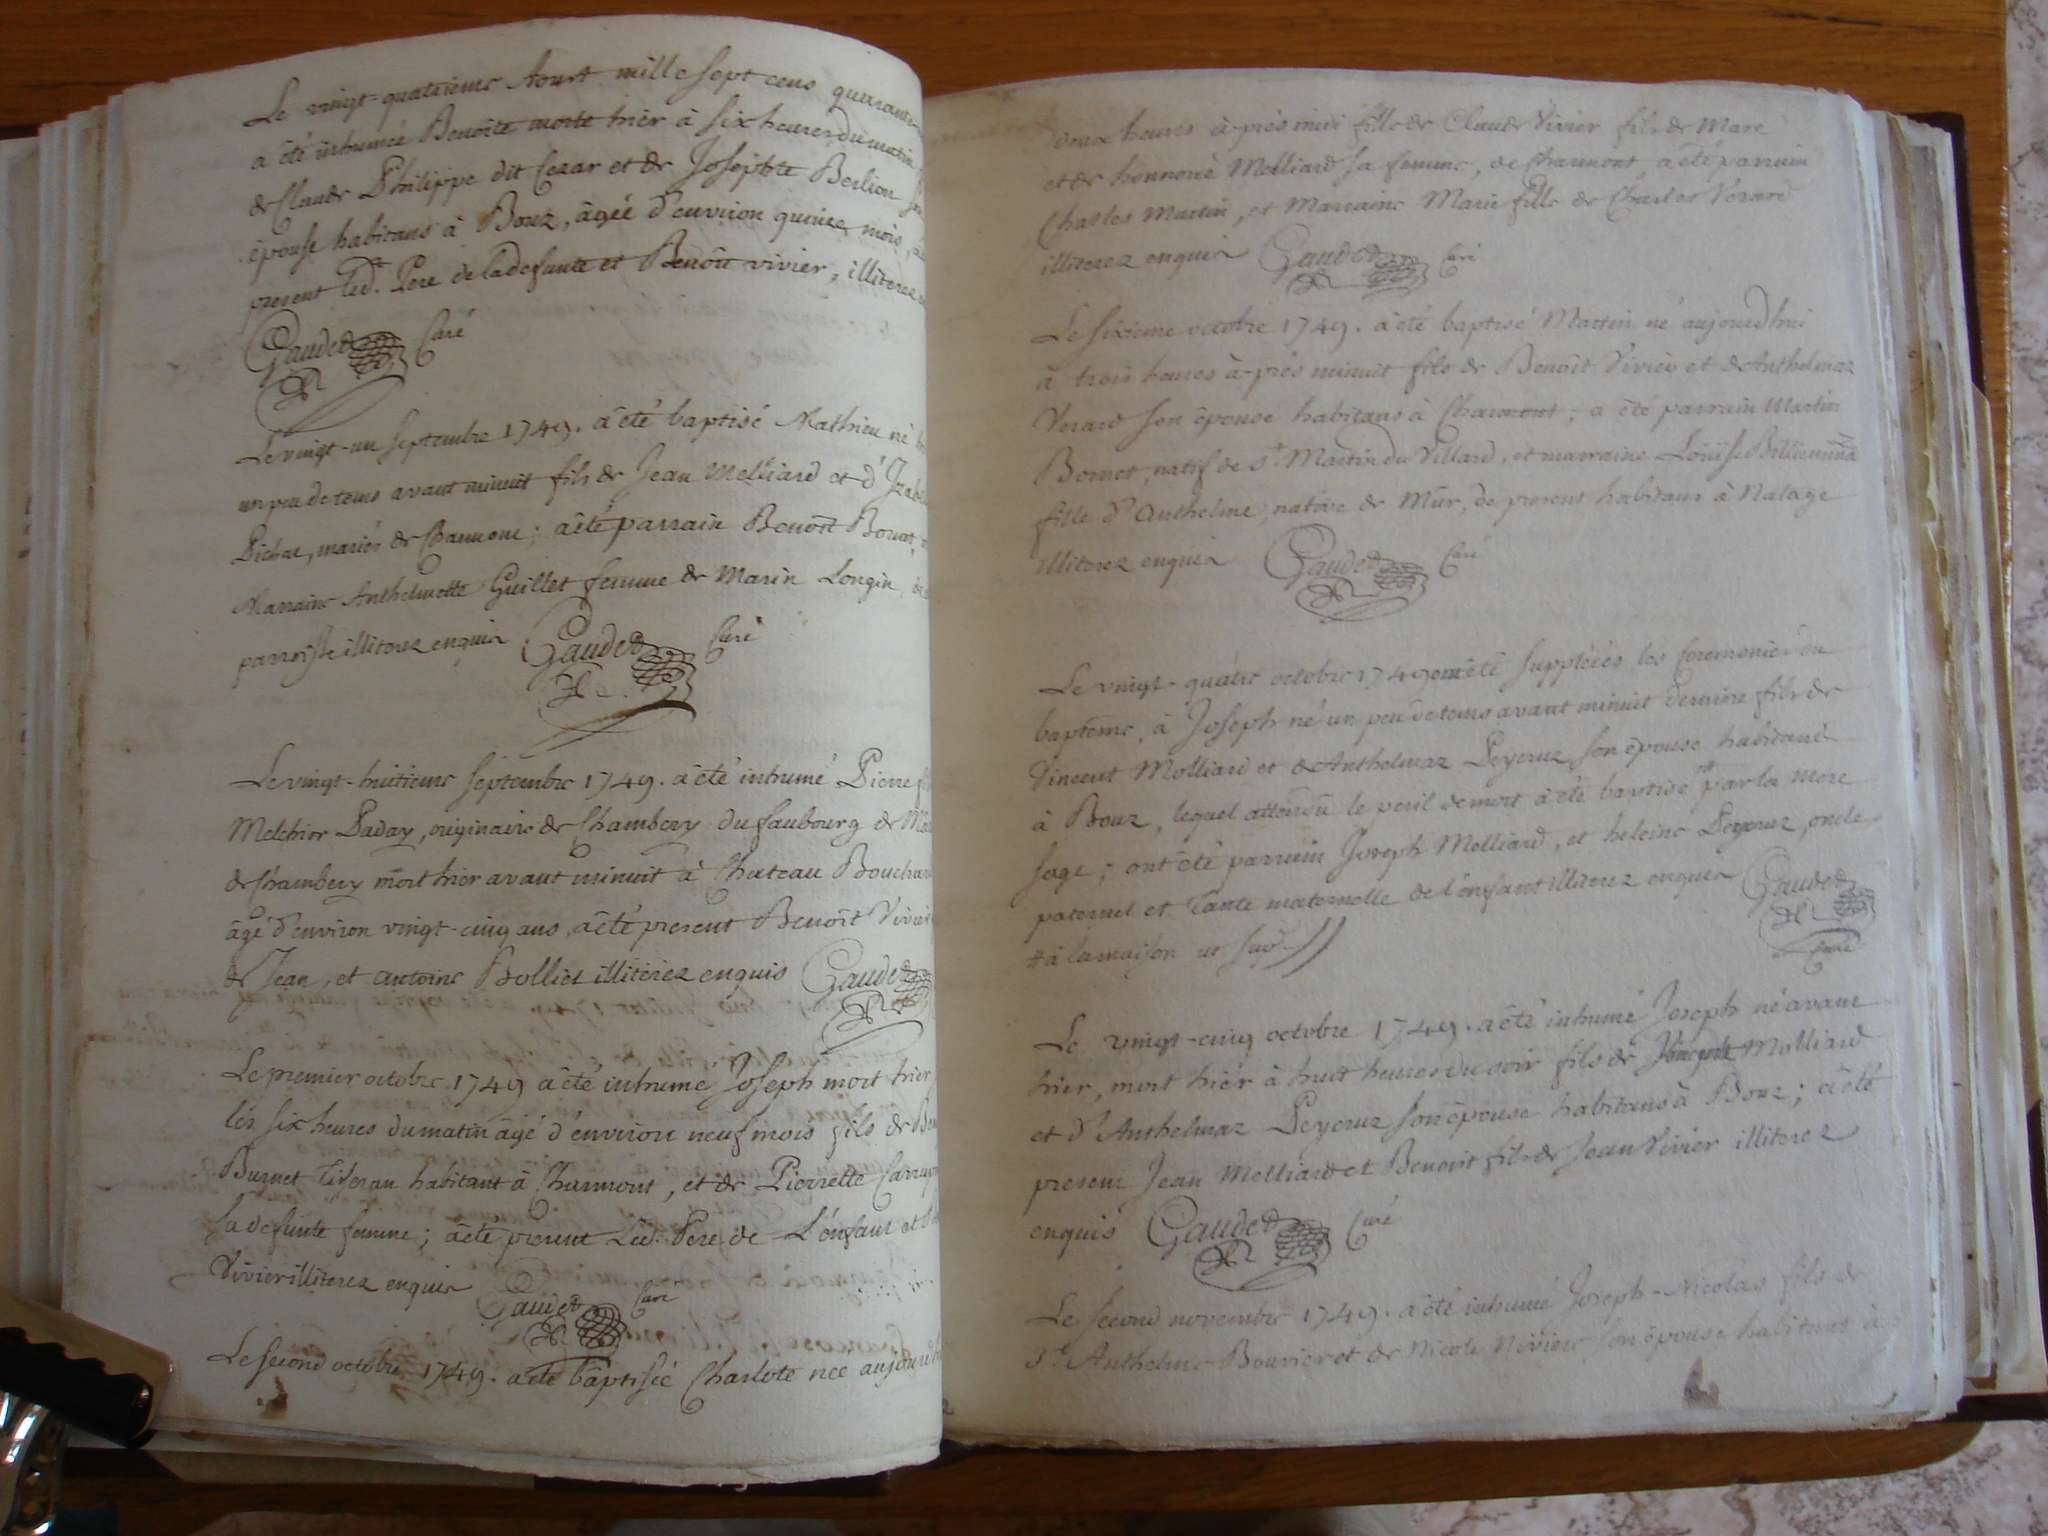 Le vingt-quatrieme Aoust mille sept cens quarante
a été inhumée Benoîte morte hier à six heures du matin
de Claude Philippe dit Cezar et de Josephte Berlion
épouse habitans à Bouz, âgée d'environ quinze mois,
present led. Pere de la defunte et Benoît vivier, illiterez
Gaudet Curé
Le vingt-un septembre 1749. a été baptisé Mathieu né
un peu de tems avant minuit fils de Jean Molliard et d'
Pichat, mariés de Chaumont; a été parrain Benoît Bornet,
Marraine Anthelmette Guillet femme de Marin Longin,
parroisse illiterez enquis Gaudet Curé
Le vingt-huitieme septembre 1749. a été inhumé Pierre
Melchior Paday, originaire de Chambery du faubourg de
de Chambery mort hier avant minuit à Chateau
âgé d'environ vingt-cinq ans, a été present Benoît Vivier
de Jean, et antoine Bolliet illiterez enquis Gaudet
Le premier octobre 1749 a été inhumé Joseph mort hier
les six heures du matin âgé d'environ neuf mois fils de
Burnet habitant à Chaumont, et de Pierrette
sa defunte femme; a été present Led. Pere de L'enfant et
Vivier illiterez enquis Gaudet Curé
Le second octobre 1749. a été baptisée Charlote née aujourd
deux heures après midi fille de Claude Vivier fils de Marc
et de honnorée Molliard sa femme, de Chaumont, a été parrain
Charles Martin, et Marraine Marie fille de Charles Vérard
illiterez enquis Gaudet Curé
Le sixieme octobre 1749. a été baptisé Martin né aujourd'hui
à trois heures après minuit fils de Benoît Vivier et de Anthelmaz
Verard son épouse habitans à Chaumont, a été parrain Martin
Bornet, natif de St. Martin du Villard, et marraine Louise
fille d'Anthelme, native de Mûr, de present habitans à Natage
illiterez enquis Gaudet Curé
Le vingt-quatre octobre 1749 ont été suppléées les ceremonies du
baptême, à Joseph né un peu de tems avant minuit dernier fils de
Vincent Molliard et de Anthelmaz Peyeruz son épouse habitans
à Bouz, lequel attendu le peril de mort a été baptisé # par la mere
sage; ont été parrain Joseph Molliard, et heleine Peyeruz, oncle
paternel et Tante maternelle de l'enfant illiterez enquis Gaudet
# à la maison ut sup. Curé
Le vingt-cinq octobre 1749. a été inhumé Joseph né avant
hier, mort hier à huit heures du soir fils de Vincent Molliard
et d'Anthelmaz Peyeruz son épouse habitans à Bouz; a été
present Jean Molliard et Benoit fils de Jean Vivier illiterez
enquis Gaudet Curé
Le second novembre 1749. a été inhumé Joseph-Nicolas fils de
Sr. Anthelme Bouvier et de Nicole Riviere son épouse habitans à